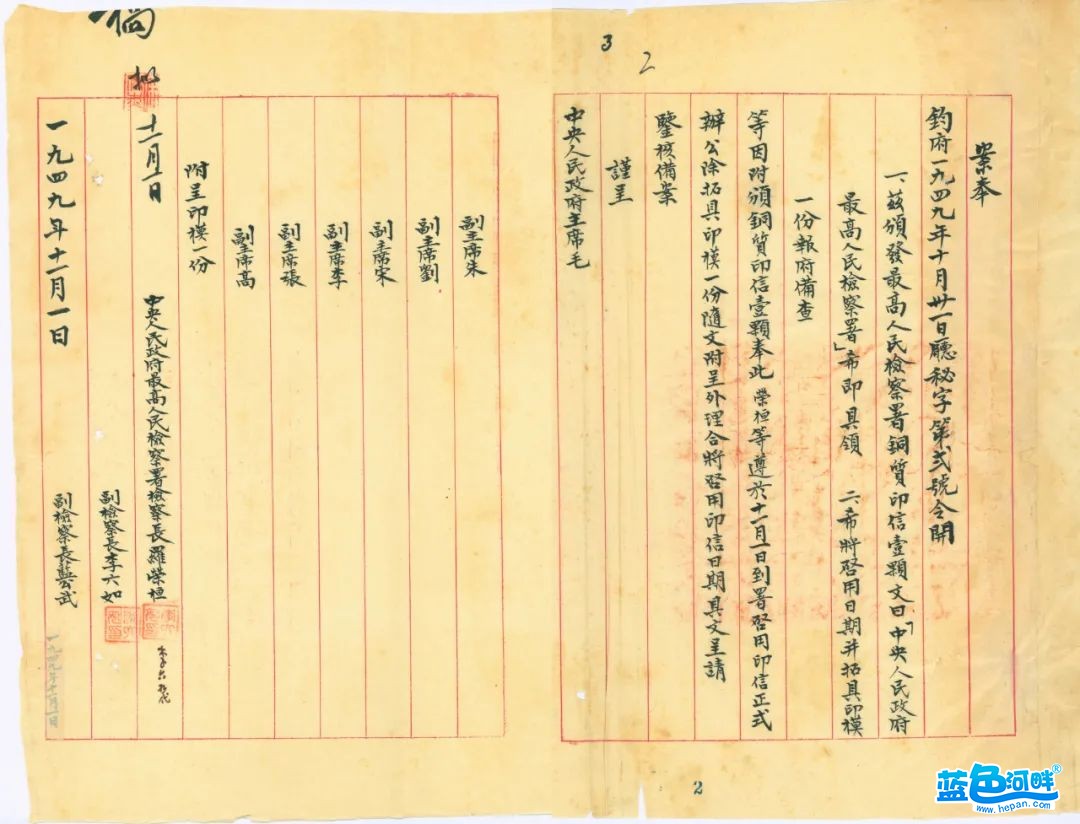 3
2
案奉
鈞府一九四九年十月卅一日廳秘字第弍號令開
一、茲頒發最高人民檢察署銅質印信壹顆文曰「中央人民政府
最高人民檢察署」希即具領　二、希將啓用日期并拓具印模
一份報府備查
等因附頒銅質印信壹顆奉此榮桓等遵於十一月一日到署啓用印信正式
辦公除拓具印模一份隨文附呈外理合將啓用印信日期具文呈請
鑒核備案
謹呈
中央人民政府主席毛
副主席朱
副主席劉
副主席宋
副主席李
副主席張
副主席高
附呈印模一份
中央人民政府最高人民檢察署檢察長羅榮桓
李六如代
副檢察長李六如
副檢察長藍公武
十一月一日
一九四九年十一月一日
一九四九年十一月一日
2
蓝色河畔®
www.hepan.com